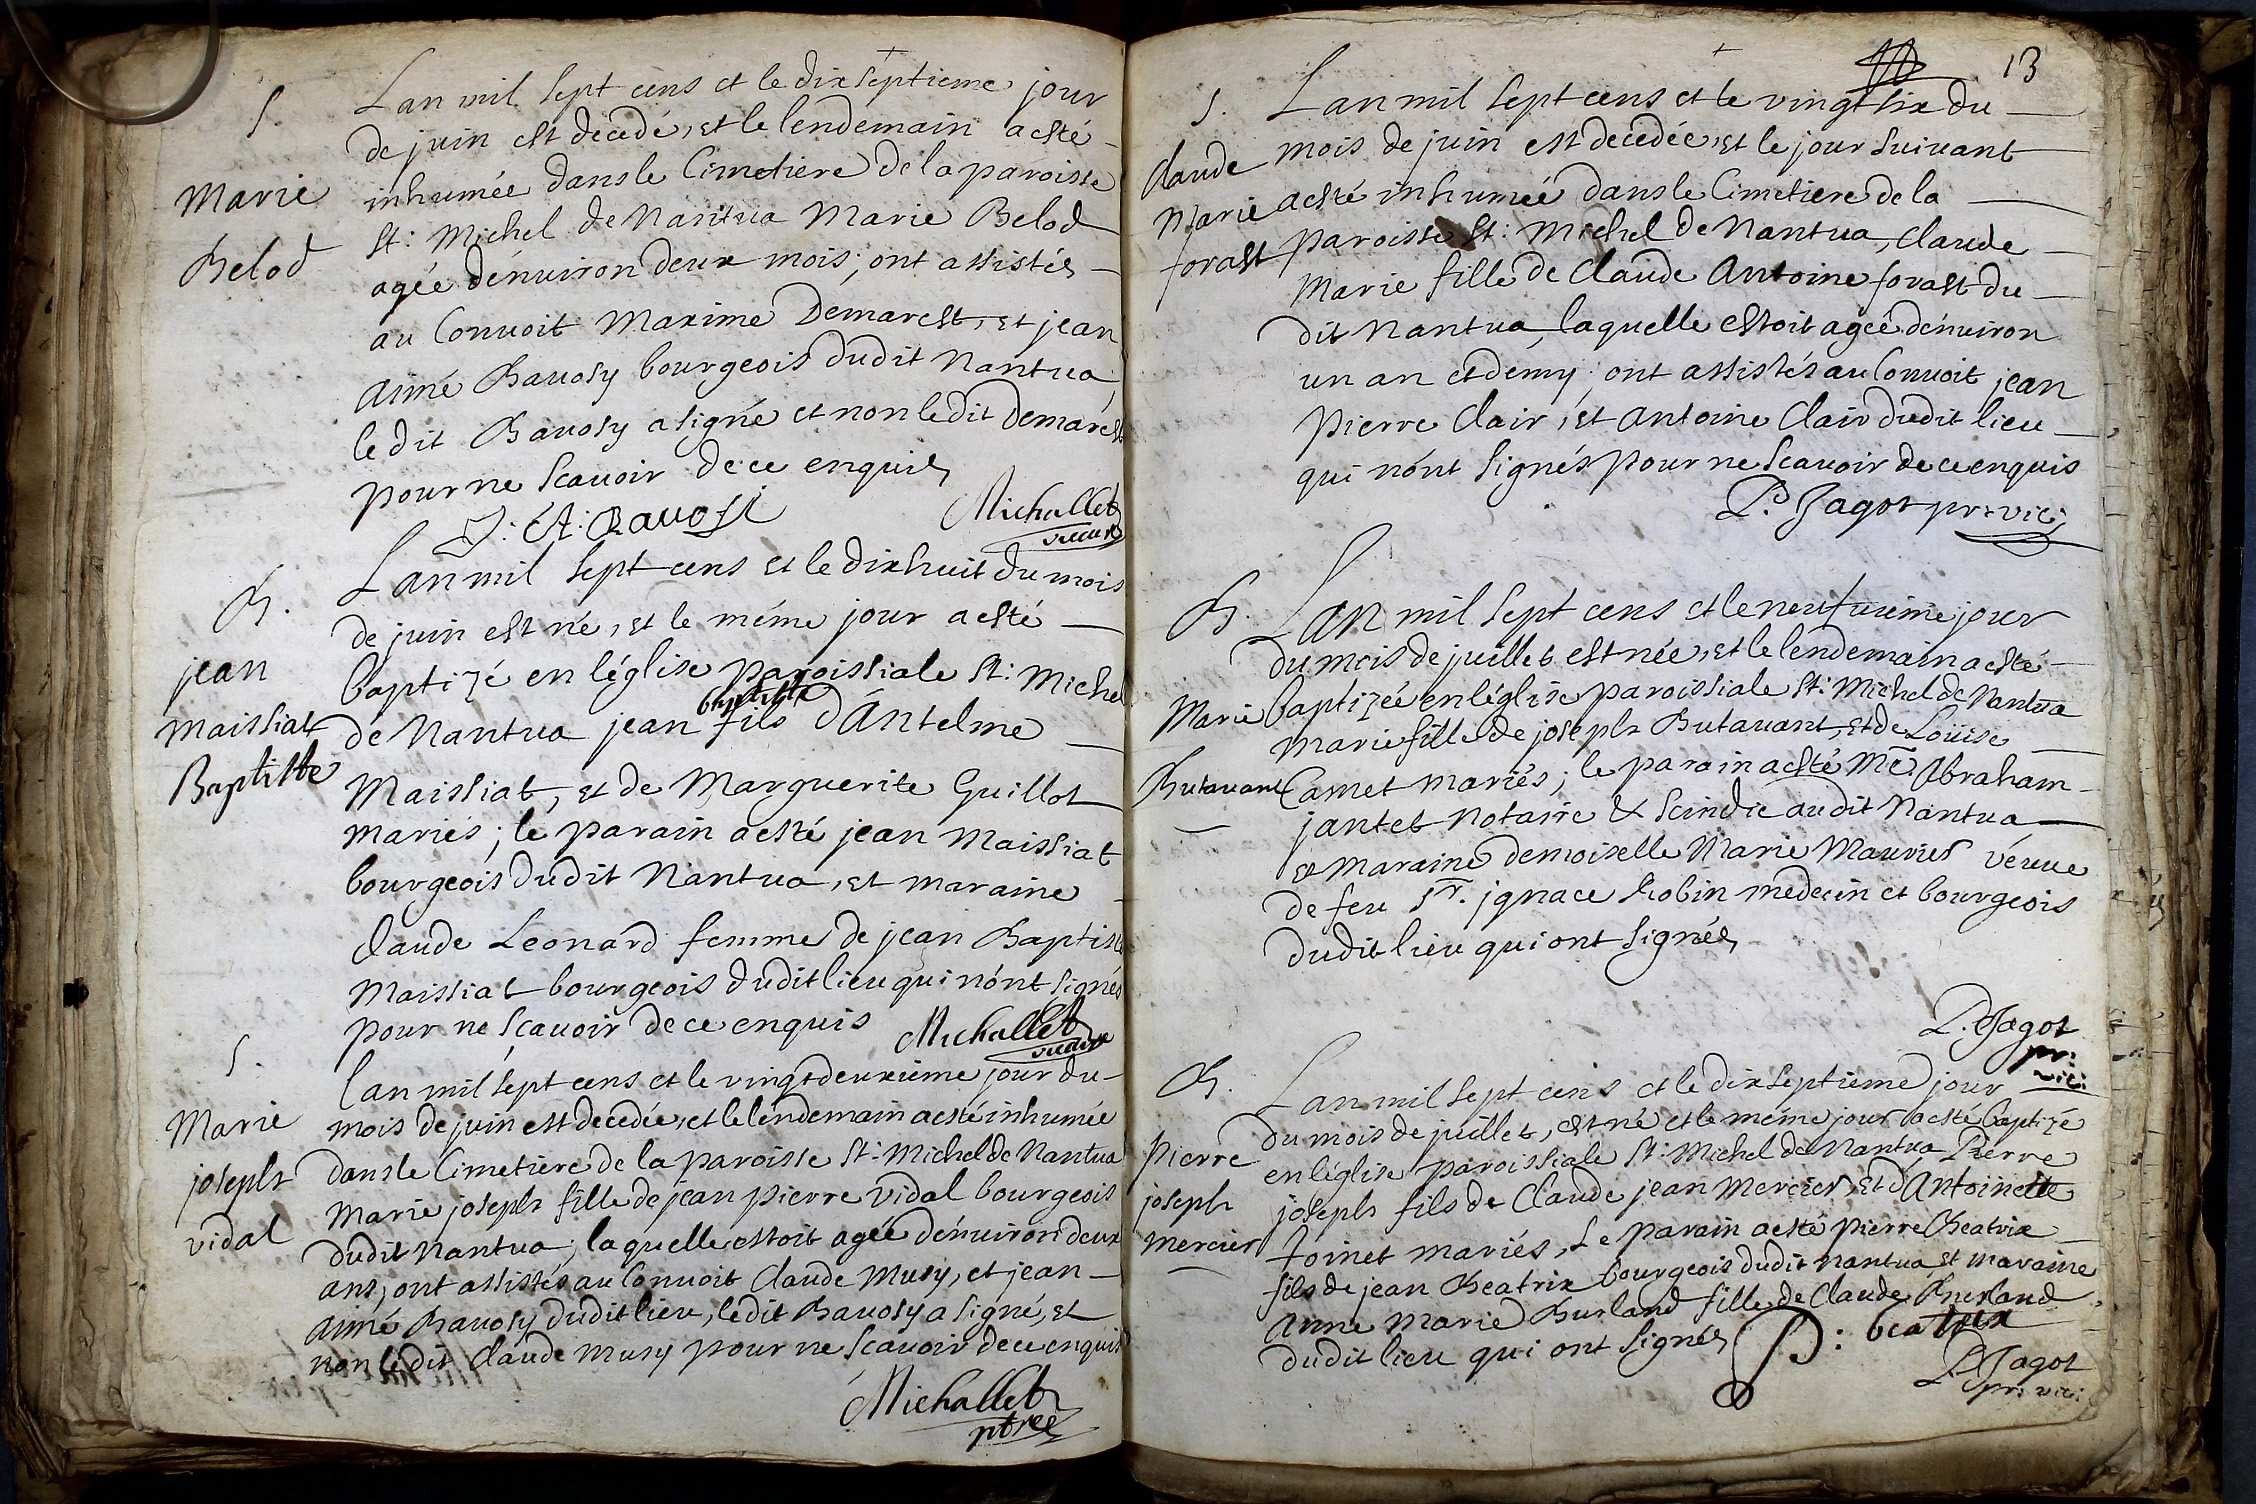 S.
Marie
Belod
Lan mil sept cens et le dix septieme jour
de juin est decedé, et le lendemain a esté
inhumée dans le Cimetiere de la paroisse
St: Michel de Nantua Marie Belod
agée dénuiron deux mois; ont assistés
au Conuoit Maxime Demarest, et jean
Aimé Bauosy bourgeois dudit Nantua,
ledit Bauosy a signé et non ledit Demarest
pour ne scauoir de ce enquis
J: A: Bauosi
Michallet
vicaire
B.
jean
Maissiat
Baptiste
Lan mil sept cens et le dixhuit du mois
de juin est né, et le méme jour a esté
baptizé en léglise paroissiale St: Michel
baptiste
de Nantua jean fils d'Antelme
Maissiat, et de Marguerite Guillot
mariés; le parain a esté jean Maissiat
bourgeois dudit Nantua, et maraine
Claude Leonard femme de jean Baptiste
Maissiat bourgeois dudit lieu qui n'ont signés
pour ne scauoir de ce enquis
Michallet
vicaire
S.
Marie
joseph
vidal
Lan mil sept cens et le vingtdeuxiéme jour du
mois de juin est decedée, et le lendemain a esté inhumée
dans le Cimetiere de la paroisse St: Michel de Nantua
Marie joseph fille de jean pierre vidal bourgeois
dudit Nantua, laquelle estoit agée dénuiron deux
ans, ont assistés au Conuoit Claude Musy, et jean
Aimé Bauosy dudit lieu, ledit Bauosy a signé, et
non ledit Claude musy pour ne scauoir de ce enquis
Michallet
ptre
13
S.
Claude
Marie
forast
Lan mil sept cens et le vingt six du
mois de juin est decedée, et le jour suiuant
a esté inhumée dans le Cimetiere de la
paroisse St: Michel de Nantua, Claude
Marie fille de Claude Antoine forast du
dit Nantua, laquelle estoit agée dénuiron
un an et demy; ont assistés au Conuoit jean
Pierre Clair, et Antoine Clair dudit lieu
qui n'ont signés pour ne scauoir de ce enquis
P. Jagot pr: vic:
B.
Marie
Butauant
Lan mil sept cens et le neufuiéme jour
du mois de juillet est née, et le lendemain a esté
baptizée en léglise paroissiale St: Michel de Nantua
Marie fille de joseph Butauant, et de Loüise
Camet mariés; le parain a esté Me. Abraham
jantet Notaire & scindic audit Nantua
et maraine demoiselle Marie Maurier véuue
de feu Sr. jgnace Robin medecin et bourgeois
dudit lieu qui ont signés
P. Jagot
pr:
vic:
B.
Pierre
joseph
mercier
Lan mil sept cens et le dix septiéme jour
du mois de juillet, est né et le méme jour a esté baptizé
en léglise paroissiale St: Michel de Nantua Pierre
joseph fils de Claude jean Mercier, et d'Antoinette
toinet mariés, Le parain a esté pierre Beatrix
fils de jean Beatrix bourgeois dudit nantua, et maraine
Anne Marie Burland fille de Claude Burland
dudit lieu qui ont signés
P: beatrix
P. Jagot
pr: vic: